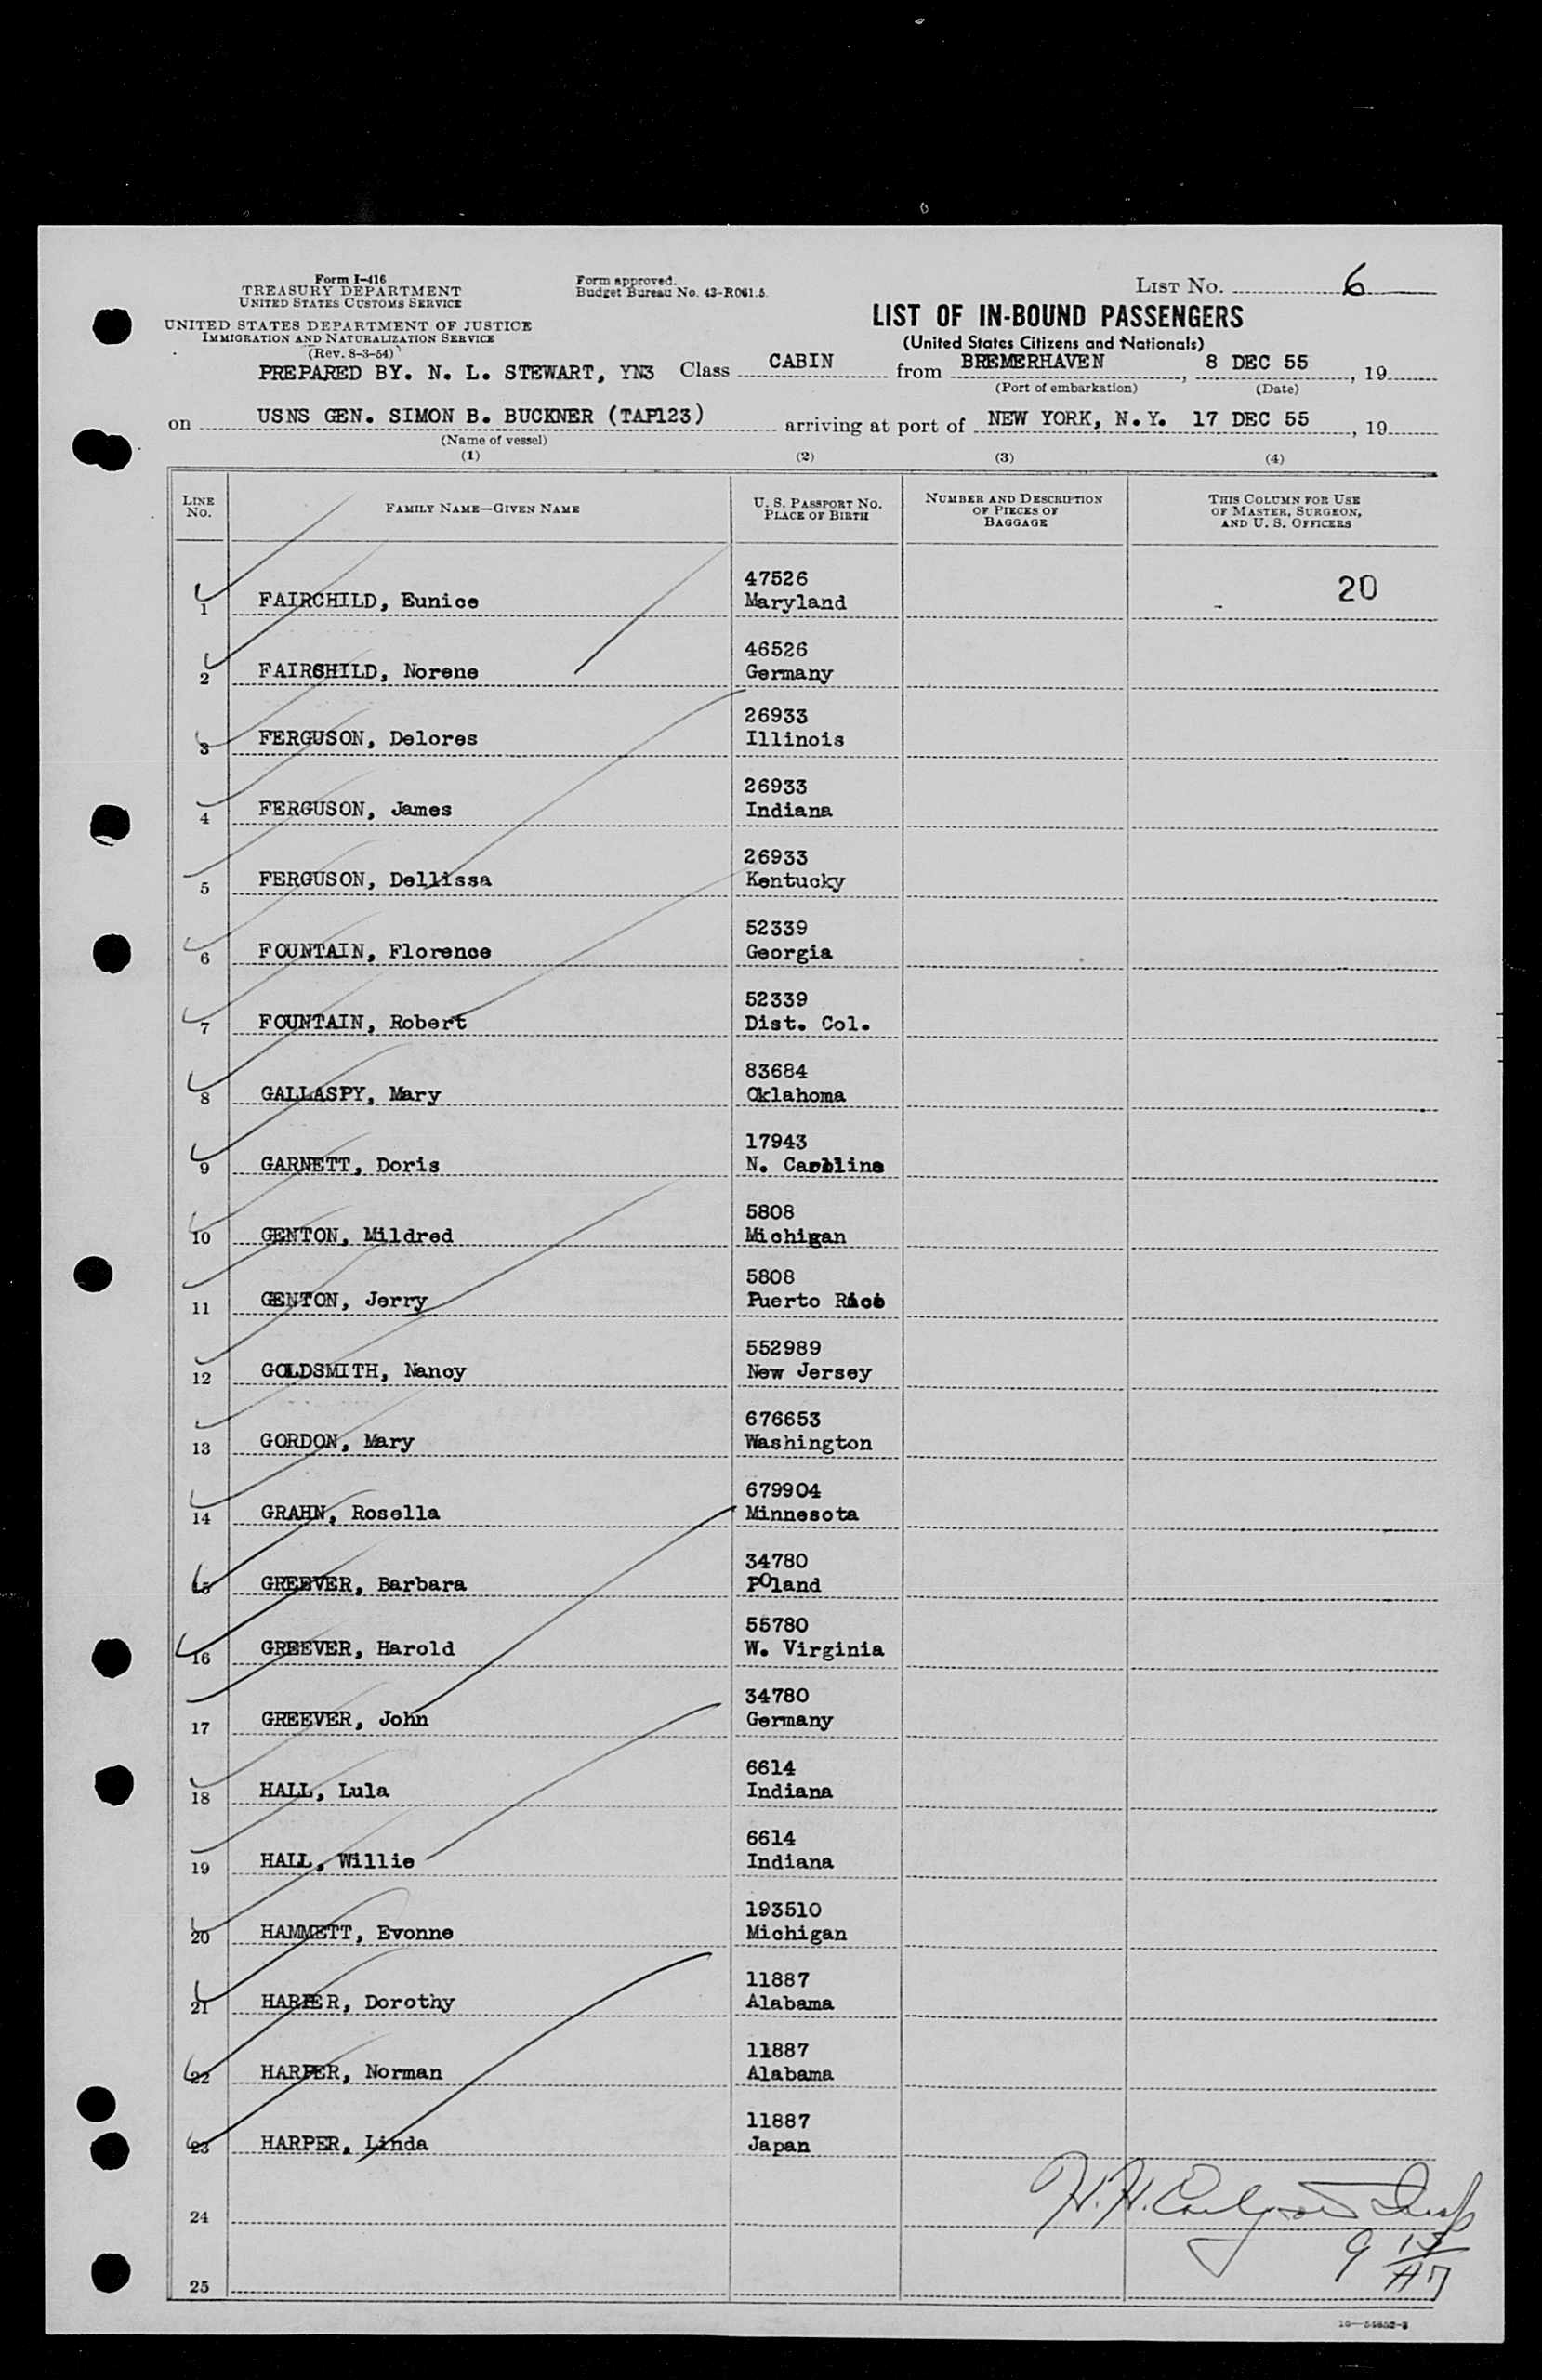 Form I-416
TREASURY DEPARTMENT
UNITED STATES CUSTOMS SERVICE
UNITED STATES DEPARTMENT OF JUSTICE
IMMIGRATION AND NATURALIZATION SERVICE
(Rev. 8-3-54)
Form approved.
Budget Bureau No. 43-R061.5.
LIST NO. 6
LIST OF IN-BOUND PASSENGERS
(United States Citizens and Nationals)
PREPARED BY. N. L. STEWART, YN3 Class CABIN from BREMERHAVEN, 8 DEC 55, 19
(Port of embarkation) (Date)
on USNS GEN. SIMON B. BUCKNER (TAP123) arriving at port of NEW YORK, N.Y. 17 DEC 55, 19
(Name of vessel)
(1) (2) (3) (4)
LINE NO. FAMILY NAME—GIVEN NAME U. S. PASSPORT NO. PLACE OF BIRTH NUMBER AND DESCRIPTION OF PIECES OF BAGGAGE THIS COLUMN FOR USE OF MASTER, SURGEON, AND U. S. OFFICERS
47526 20
1 FAIRCHILD, Eunice Maryland
46526
2 FAIRCHILD, Norene Germany
26933
3 FERGUSON, Delores Illinois
26933
4 FERGUSON, James Indiana
26933
5 FERGUSON, Dellissa Kentucky
52339
6 FOUNTAIN, Florence Georgia
52339
7 FOUNTAIN, Robert Dist. Col.
83684
8 GALLASPY, Mary Oklahoma
17943
9 GARNETT, Doris N. Carolina
5808
10 GENTON, Mildred Michigan
5808
11 GENTON, Jerry Puerto Rico
552989
12 GOLDSMITH, Nancy New Jersey
676653
13 GORDON, Mary Washington
679904
14 GRAHN, Rosella Minnesota
34780
15 GREEVER, Barbara Poland
55780
16 GREEVER, Harold W. Virginia
34780
17 GREEVER, John Germany
6614
18 HALL, Lula Indiana
6614
19 HALL, Willie Indiana
193510
20 HAMMETT, Evonne Michigan
11887
21 HARPER, Dorothy Alabama
11887
22 HARPER, Norman Alabama
11887
23 HARPER, Linda Japan
24
25